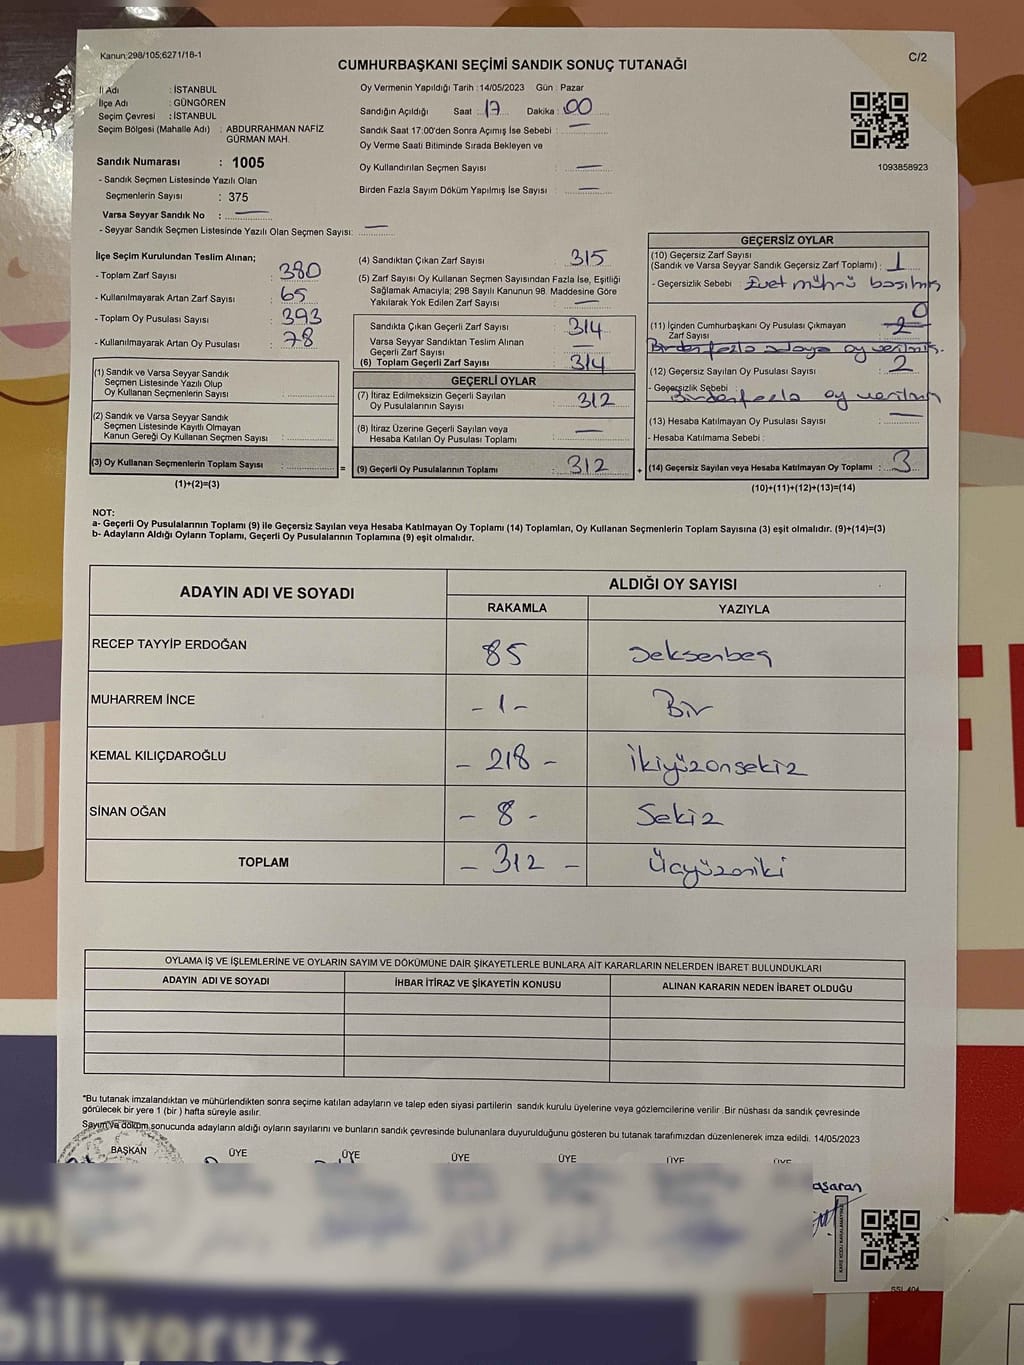 Kanun:298/105;6271/18-1
C/2
CUMHURBAŞKANI SEÇİMİ SANDIK SONUÇ TUTANAĞI
İl Adı : İSTANBUL
İlçe Adı : GÜNGÖREN
Seçim Çevresi : İSTANBUL
Seçim Bölgesi (Mahalle Adı) : ABDURRAHMAN NAFİZ
GÜRMAN MAH.
Sandık Numarası : 1005
- Sandık Seçmen Listesinde Yazılı Olan
Seçmenlerin Sayısı : 375
Varsa Seyyar Sandık No : —
- Seyyar Sandık Seçmen Listesinde Yazılı Olan Seçmen Sayısı: —
Oy Vermenin Yapıldığı Tarih : 14/05/2023 Gün : Pazar
Sandığın Açıldığı Saat : 17 Dakika : 00
Sandık Saat 17:00'den Sonra Açımış İse Sebebi : —
Oy Verme Saati Bitiminde Sırada Bekleyen ve
Oy Kullandırılan Seçmen Sayısı : —
Birden Fazla Sayım Döküm Yapılmış İse Sayısı : —
1093858923
İlçe Seçim Kurulundan Teslim Alınan;
- Toplam Zarf Sayısı : 380
- Kullanılmayarak Artan Zarf Sayısı : 65
- Toplam Oy Pusulası Sayısı : 393
- Kullanılmayarak Artan Oy Pusulası : 78
(1) Sandık ve Varsa Seyyar Sandık
Seçmen Listesinde Yazılı Olup
Oy Kullanan Seçmenlerin Sayısı :
(2) Sandık ve Varsa Seyyar Sandık
Seçmen Listesinde Kayıtlı Olmayan
Kanun Gereği Oy Kullanan Seçmen Sayısı :
(3) Oy Kullanan Seçmenlerin Toplam Sayısı :
(1)+(2)=(3)
(4) Sandıktan Çıkan Zarf Sayısı : 315
(5) Zarf Sayısı Oy Kullanan Seçmen Sayısından Fazla İse, Eşitliği
Sağlamak Amacıyla; 298 Sayılı Kanunun 98. Maddesine Göre
Yakılarak Yok Edilen Zarf Sayısı : —
Sandıkta Çıkan Geçerli Zarf Sayısı : 314
Varsa Seyyar Sandıktan Teslim Alınan
Geçerli Zarf Sayısı : —
(6) Toplam Geçerli Zarf Sayısı : 314
GEÇERLİ OYLAR
(7) İtiraz Edilmeksizin Geçerli Sayılan
Oy Pusulalarının Sayısı : 312
(8) İtiraz Üzerine Geçerli Sayılan veya
Hesaba Katılan Oy Pusulası Toplamı : —
= (9) Geçerli Oy Pusulalarının Toplamı : 312 +
GEÇERSİZ OYLAR
(10) Geçersiz Zarf Sayısı
(Sandık ve Varsa Seyyar Sandık Geçersiz Zarf Toplamı) : 1
- Geçersizlik Sebebi : Evet mührü basılmış
0
(11) İçinden Cumhurbaşkanı Oy Pusulası Çıkmayan
Zarf Sayısı : 2
Birden fazla adaya oy verilmiş.
(12) Geçersiz Sayılan Oy Pusulası Sayısı : 2
- Geçersizlik Sebebi :
Birden fazla oy verilmiş
(13) Hesaba Katılmayan Oy Pusulası Sayısı : —
- Hesaba Katılmama Sebebi :
(14) Geçersiz Sayılan veya Hesaba Katılmayan Oy Toplamı : 3
(10)+(11)+(12)+(13)=(14)
NOT:
a- Geçerli Oy Pusulalarının Toplamı (9) ile Geçersiz Sayılan veya Hesaba Katılmayan Oy Toplamı (14) Toplamları, Oy Kullanan Seçmenlerin Toplam Sayısına (3) eşit olmalıdır. (9)+(14)=(3)
b- Adayların Aldığı Oyların Toplamı, Geçerli Oy Pusulalarının Toplamına (9) eşit olmalıdır.
ADAYIN ADI VE SOYADI
ALDIĞI OY SAYISI
RAKAMLA YAZIYLA
RECEP TAYYİP ERDOĞAN 85 Seksenbeş
MUHARREM İNCE - 1 - Bir
KEMAL KILIÇDAROĞLU - 218 - İkiyüzonsekiz
SİNAN OĞAN - 8 - Sekiz
TOPLAM - 312 - Üçyüzoniki
OYLAMA İŞ VE İŞLEMLERİNE VE OYLARIN SAYIM VE DÖKÜMÜNE DAİR ŞİKAYETLERLE BUNLARA AİT KARARLARIN NELERDEN İBARET BULUNDUKLARI
ADAYIN ADI VE SOYADI İHBAR İTİRAZ VE ŞİKAYETİN KONUSU ALINAN KARARIN NEDEN İBARET OLDUĞU
*Bu tutanak imzalandıktan ve mühürlendikten sonra seçime katılan adayların ve talep eden siyasi partilerin sandık kurulu üyelerine veya gözlemcilerine verilir .Bir nüshası da sandık çevresinde
görülecek bir yere 1 (bir ) hafta süreyle asılır.
Sayım ve döküm sonucunda adayların aldığı oyların sayılarını ve bunların sandık çevresinde bulunanlara duyurulduğunu gösteren bu tutanak tarafımızdan düzenlenerek imza edildi. 14/05/2023
BAŞKAN ÜYE ÜYE ÜYE ÜYE ÜYE ÜYE
aşaran
biliyoruz.